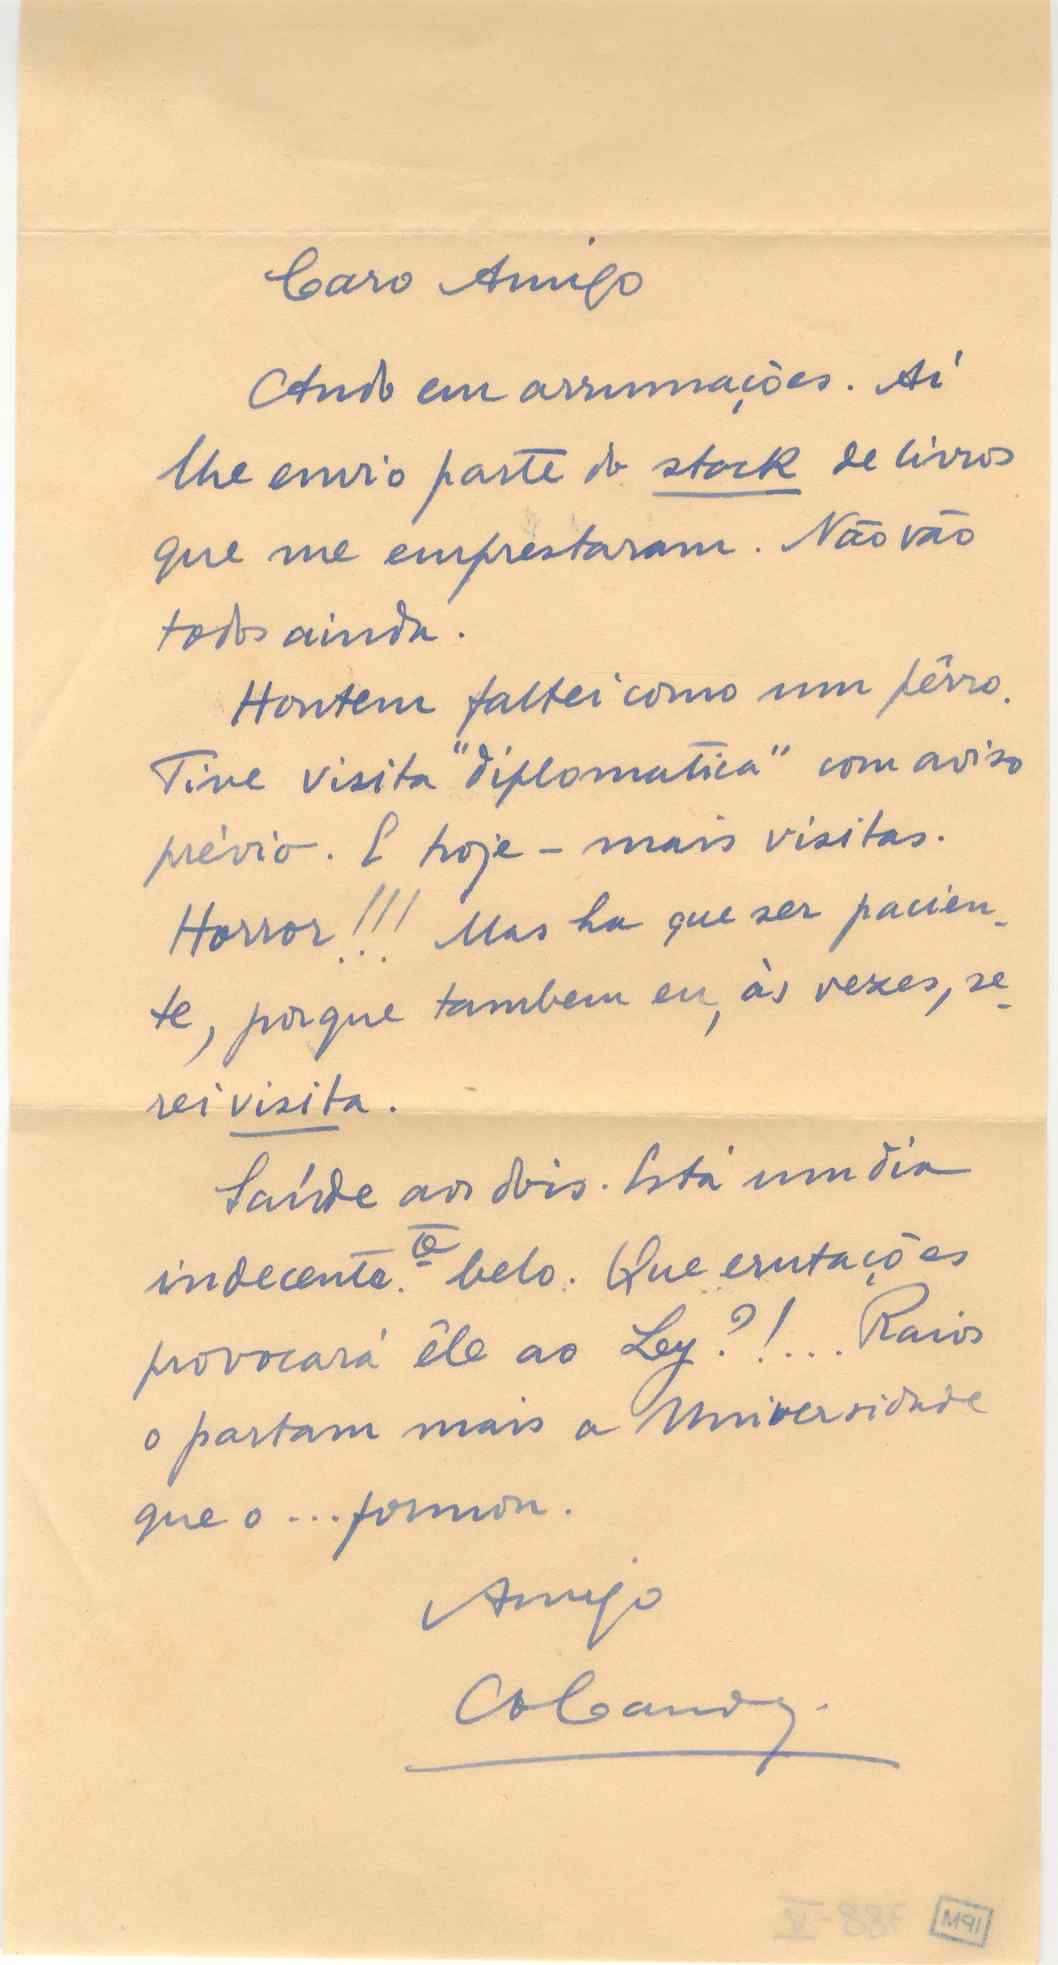 Caro Amigo
Ando em arrumações. Aí
lhe envio parte do stock de livros
que me emprestaram. Não vão
todos ainda.
Hontem faltei como um pêrro.
Tive visita "diplomatica" com aviso
prévio. E hoje – mais visitas.
Horror!!! Mas ha que ser pacien-
te, porque tambem eu, às vezes, se-
rei visita.
Saúde aos dois. Está um dia
indecente.te belo. Que erutações
provocará êle ao Ley?!... Raios
o partam mais a Universidade
que o ... formou.
Amigo
IPM